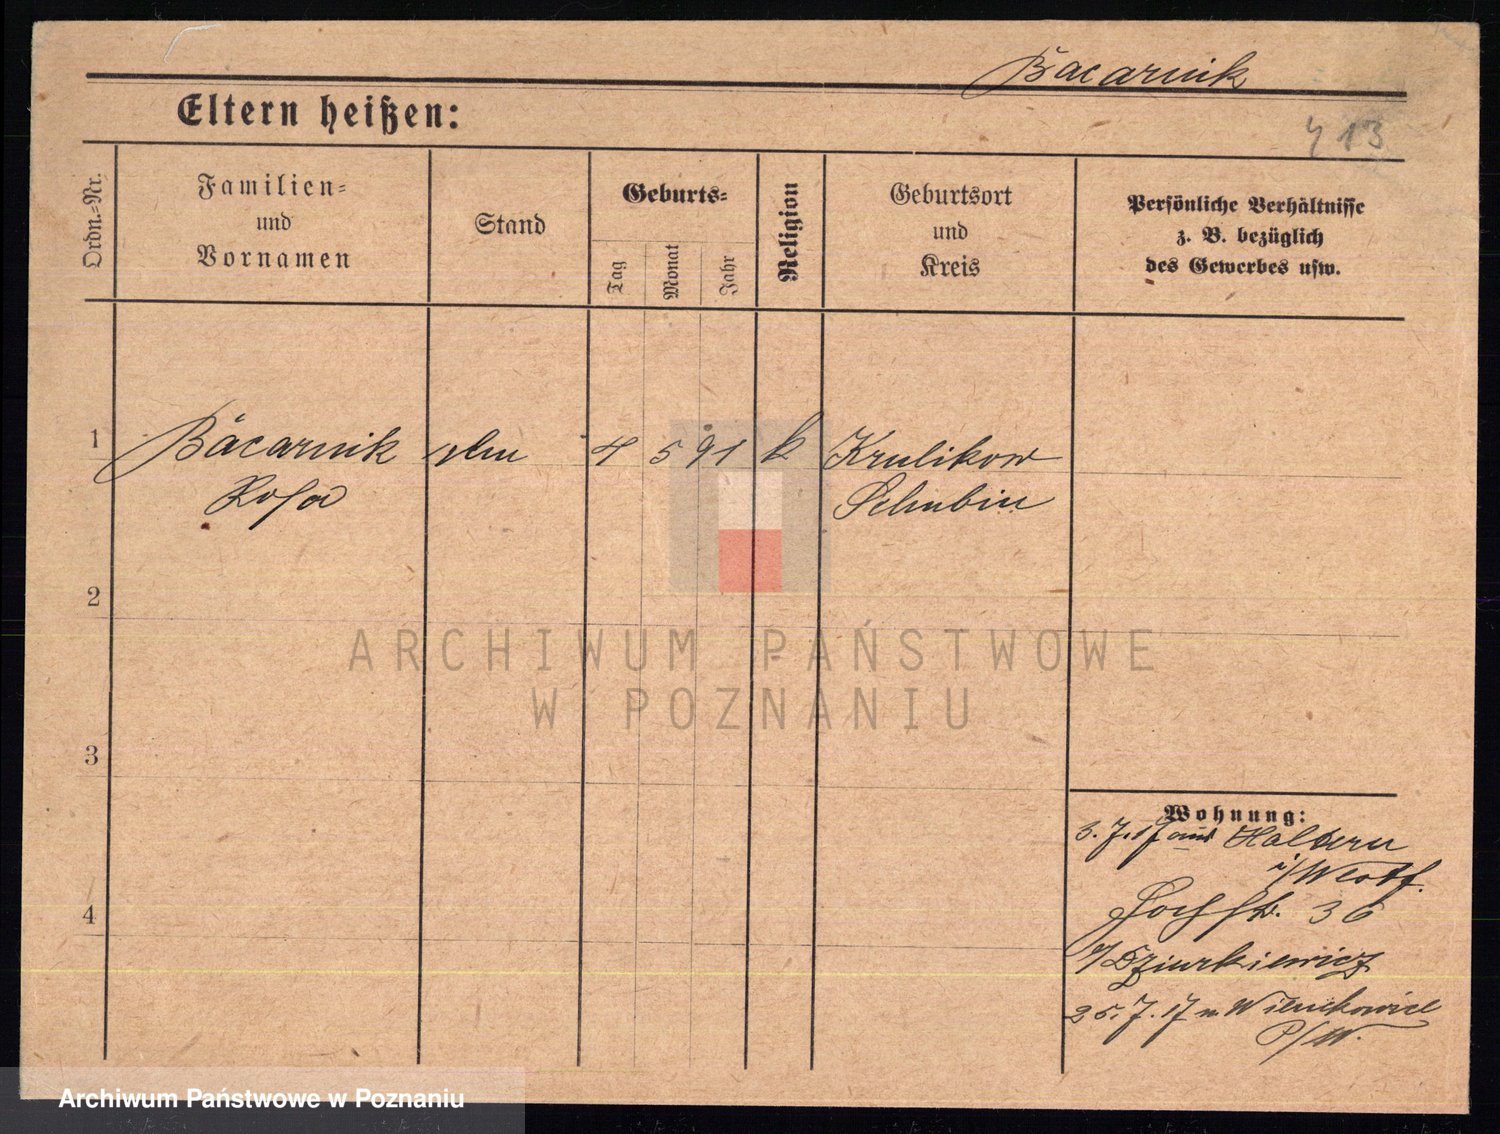 Bäcarnik
Eltern heißen:
413
Ordn.=Nr.
Familien=
und
Vornamen
Stand
Geburts=
Tag
Monat
Jahr
Religion
Geburtsort
und
Kreis
Persönliche Verhältnisse
z. B. bezüglich
des Gewerbes usw.
1
Bäcarnik
Rosa
4 5 91 k
Krulikow
Schubin
2
3
4
Wohnung:
3. 7. 17 aus Haltern
i/Westf.
36
b/Dziurkiewicz
25. 7. 17 n
P/W.
ARCHIWUM PAŃSTWOWE
W POZNANIU
Archiwum Państwowe w Poznaniu